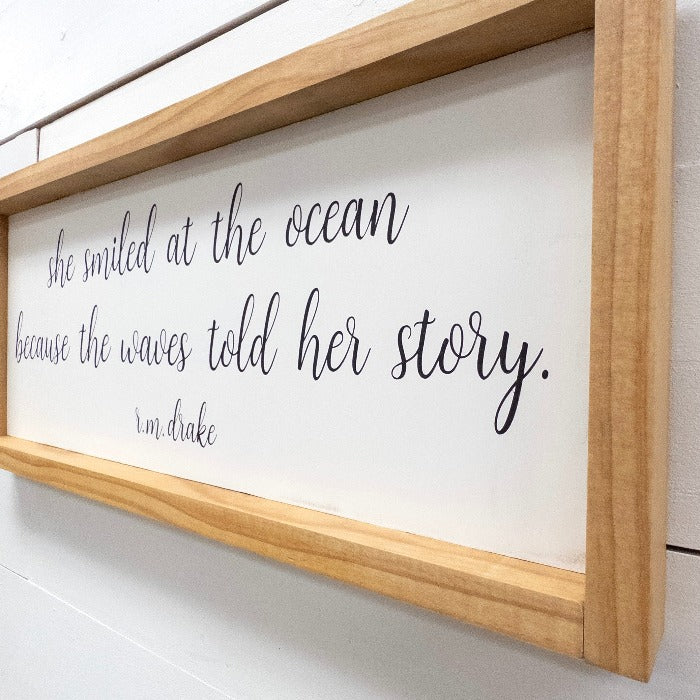 she smiled at the ocean
because the waves told her story.
r.m. drake